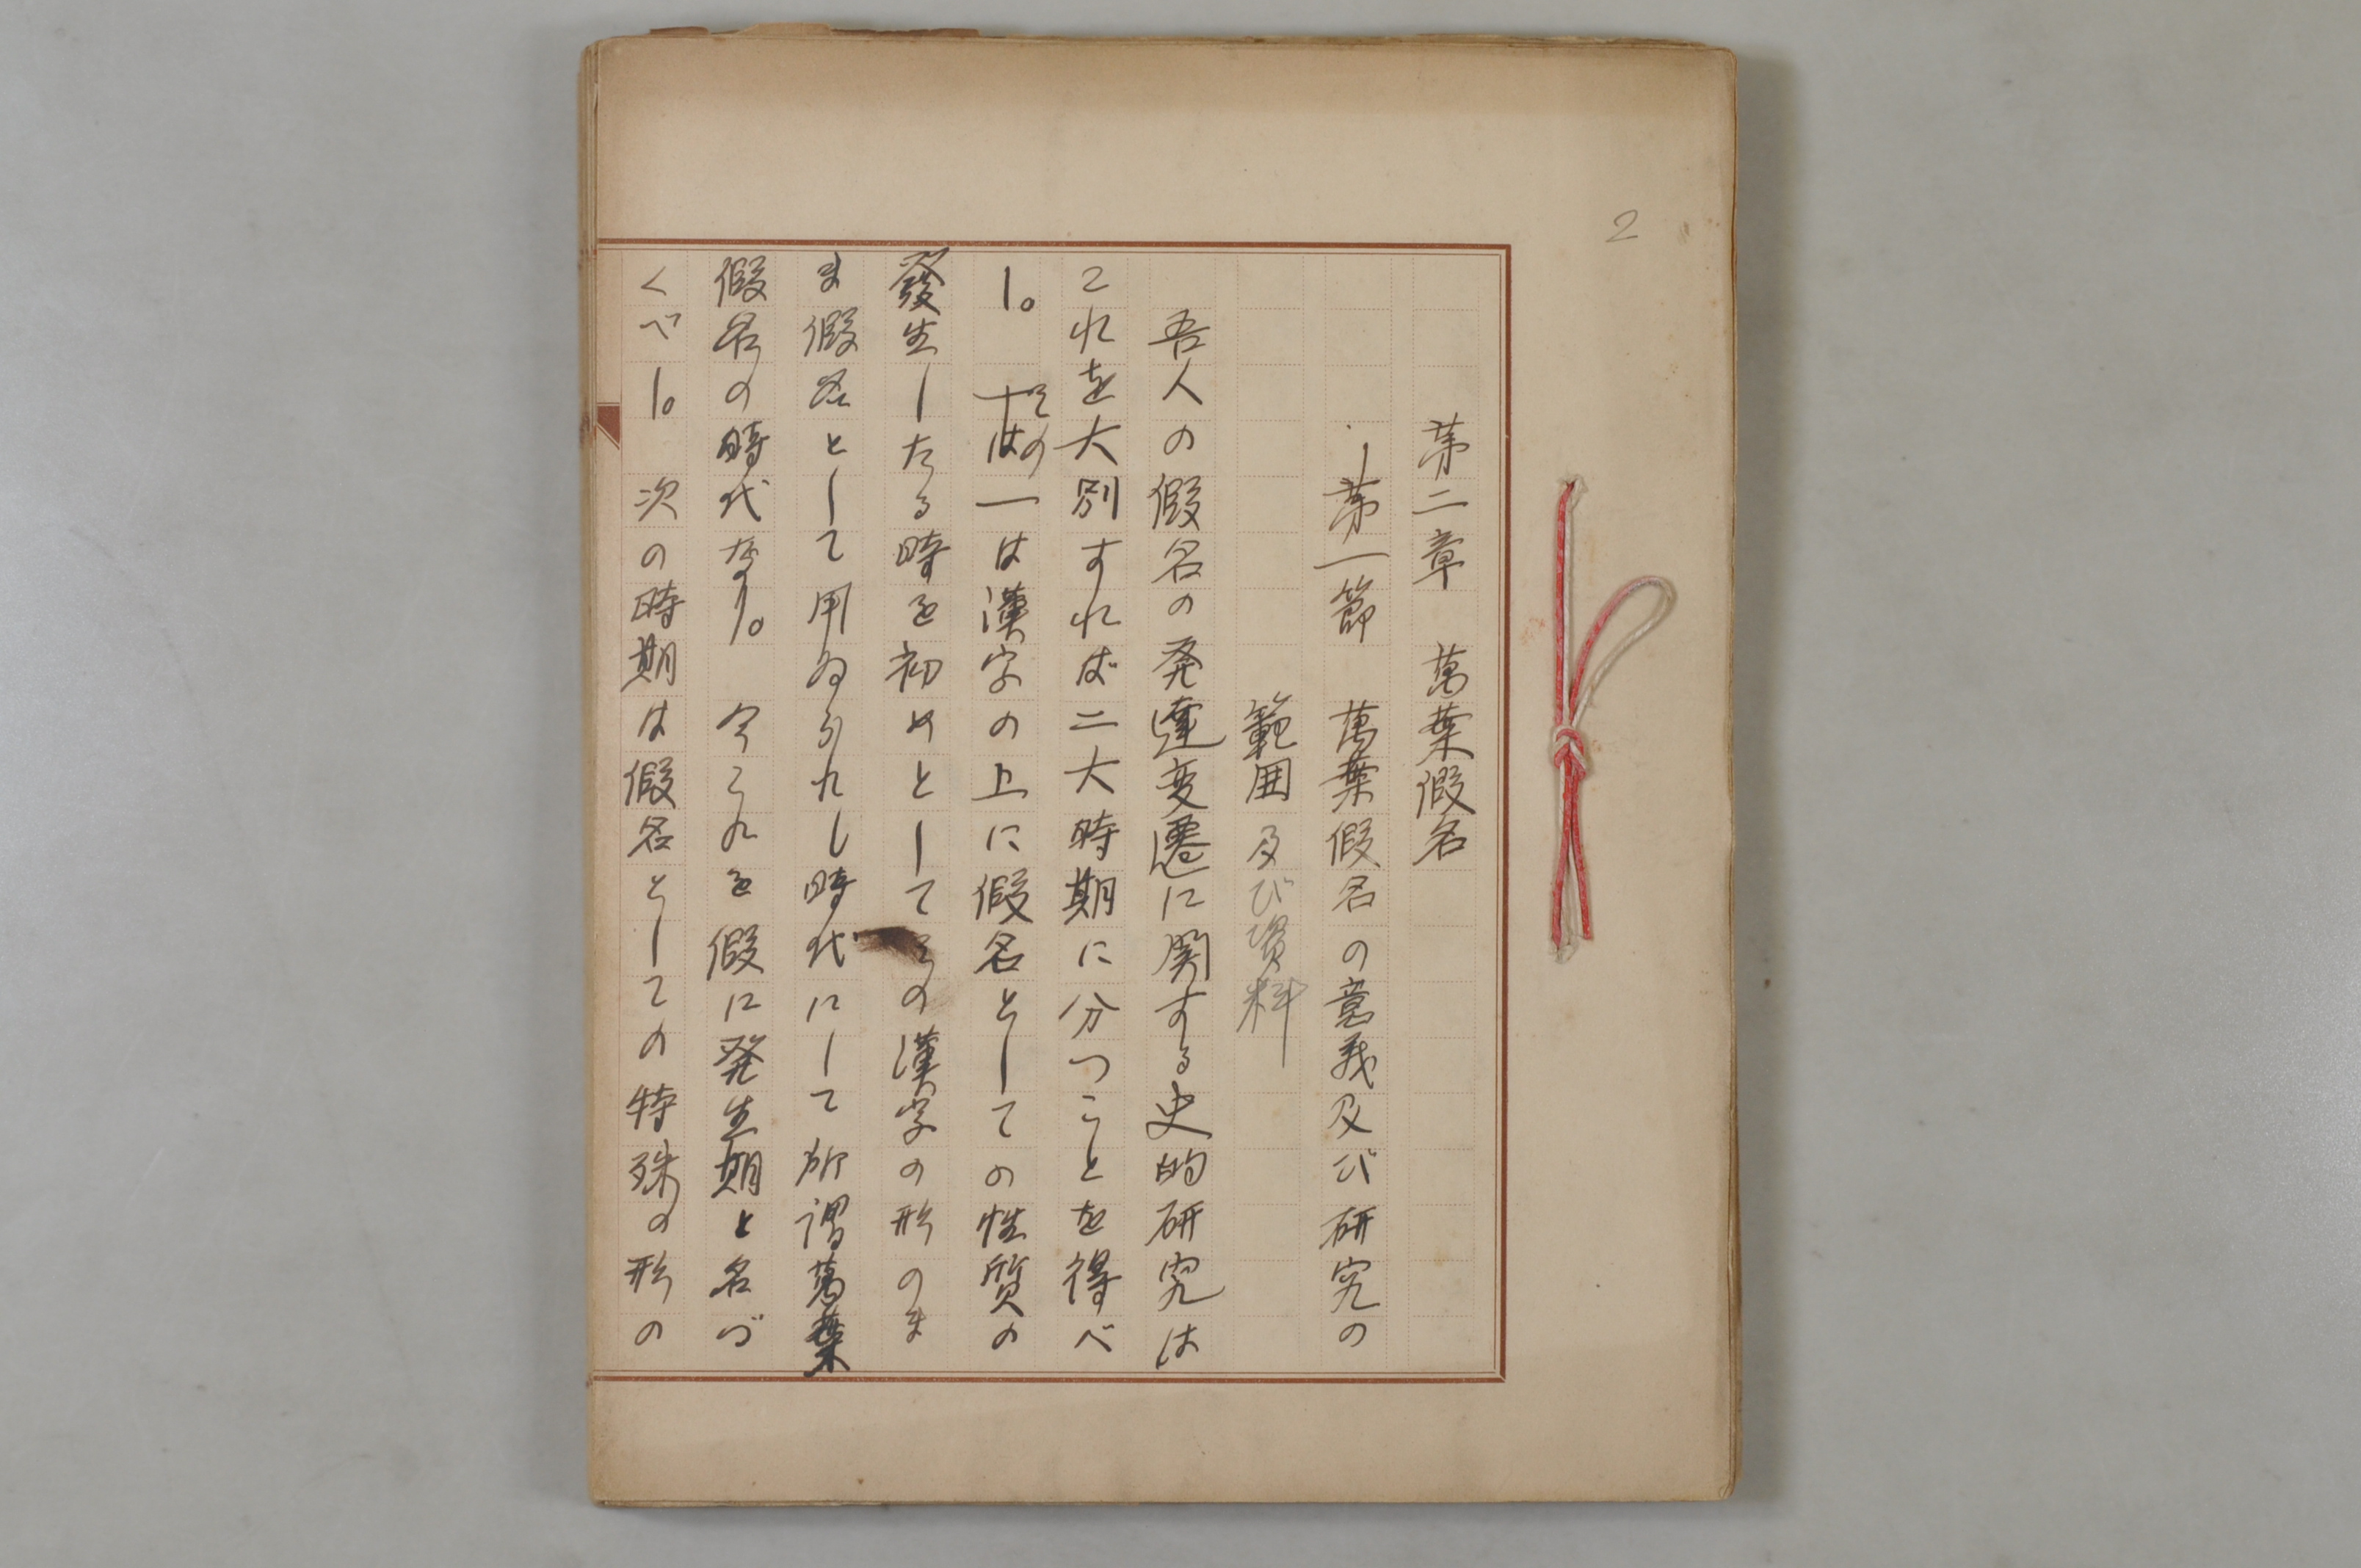 2
第二章　萬葉假名
第一節　萬葉假名の意義及び研究の
範囲及び資料
吾人の假名の発達変遷に関する史的研究は
これを大別すれば二大時期に分つことを得べ
し。その一は漢字の上に假名としての性質の
發生したる時を初めとしてその漢字の形のま
ま假名として用ゐられし時代にして所謂萬葉
假名の時代なり。今これを假に発生期と名づ
くべし。次の時期は假名としての特殊の形の